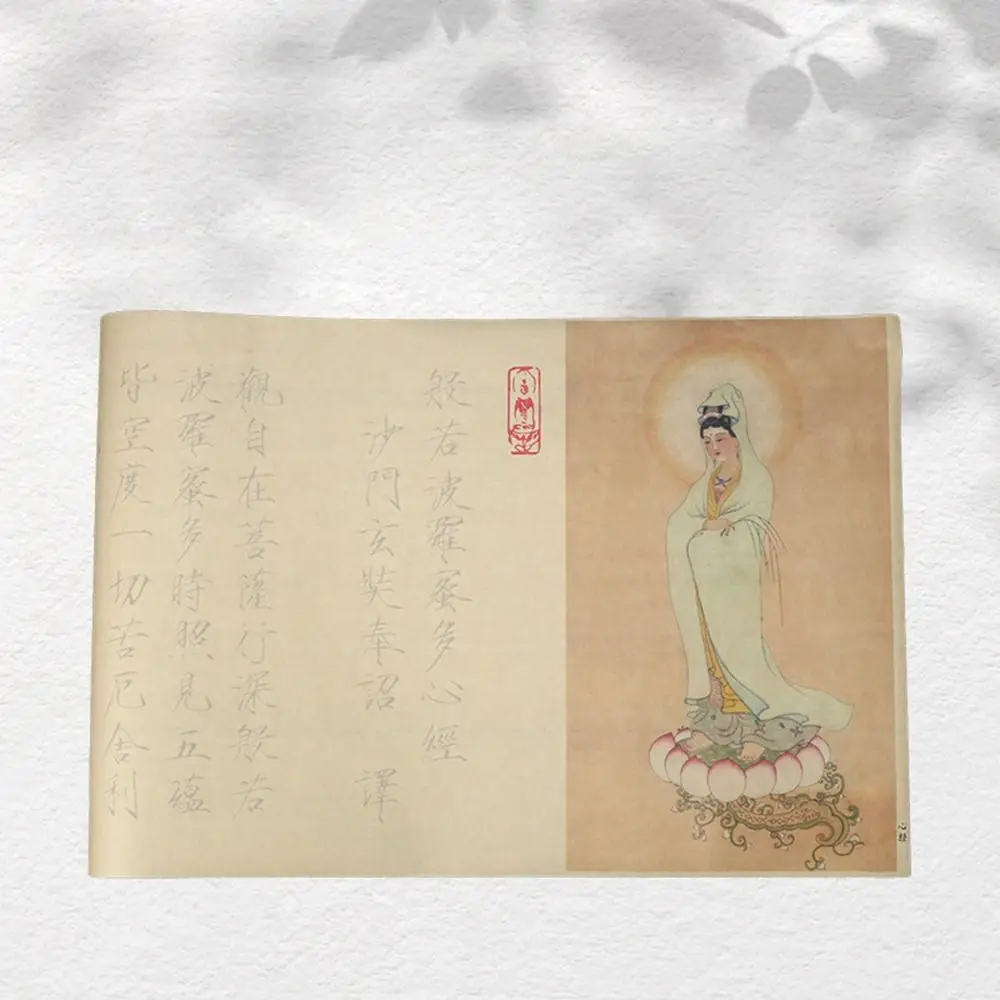 般若波羅蜜多心經
沙門玄奘奉詔 譯
觀自在菩薩行深般若
波羅蜜多時照見五蘊
皆空度一切苦厄舍利
心经